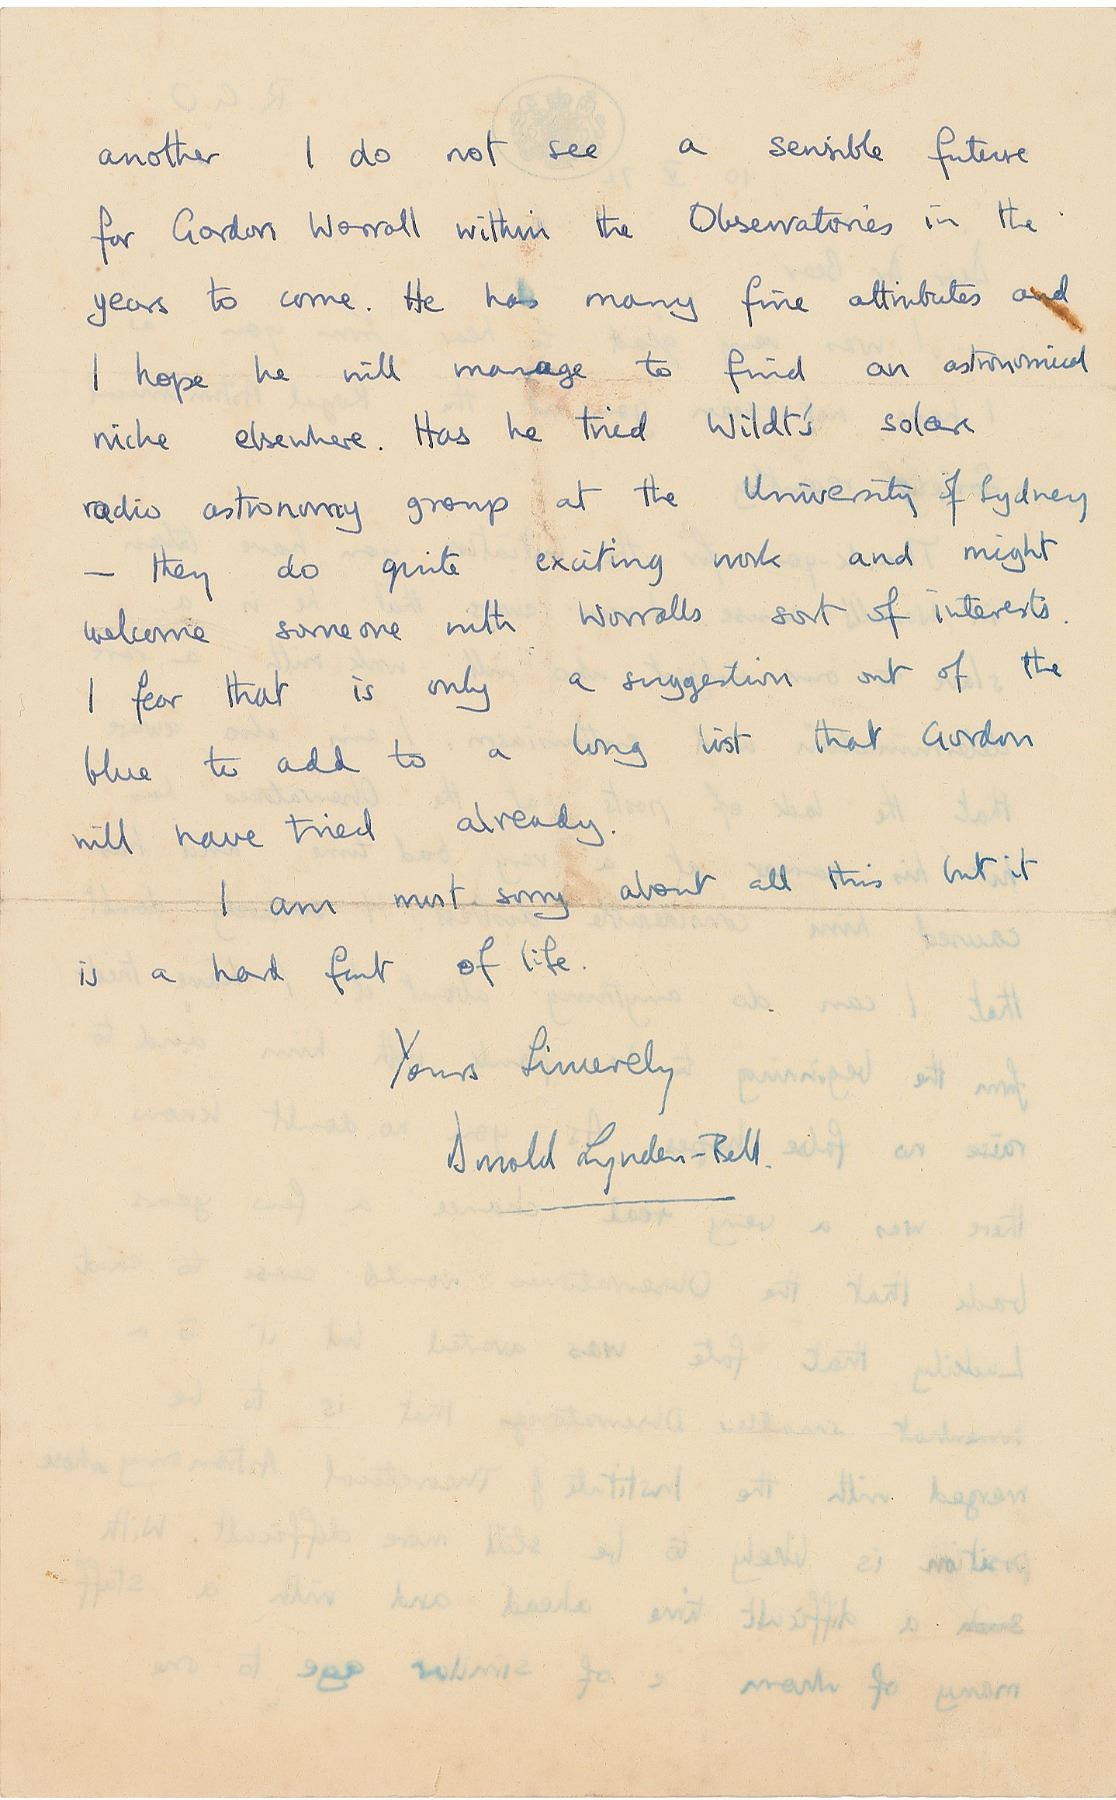 another I do not see a sensible future
for Gordon Worrall within the Observatories in the
years to come. He has many fine attributes and
I hope he will manage to find an astronomical
niche elsewhere. Has he tried Wildt's solar
radio astronomy group at the University of Sydney
— they do quite exciting work and might
welcome someone with Worralls sort of interests.
I fear that is only a suggestion out of the
blue to add to a long list that Gordon
will have tried already.
I am most sorry about all this but it
is a hard fact of life.
Yours Sincerely
Donald Lynden-Bell.